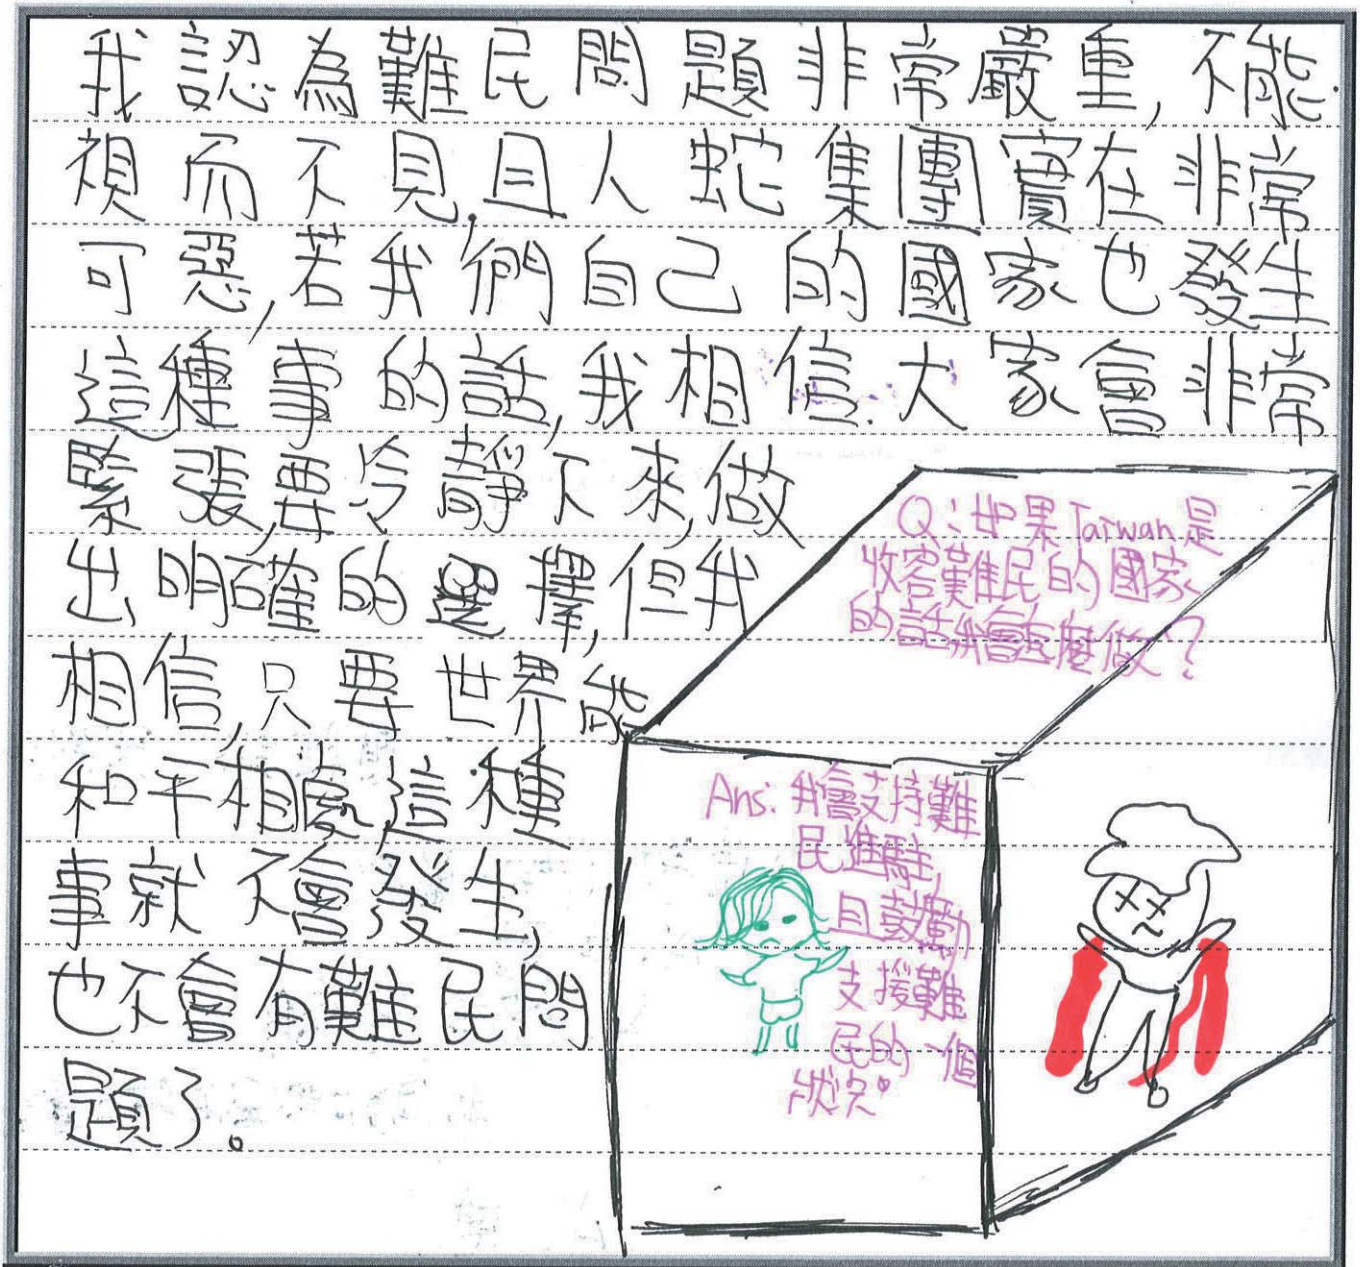 我認為難民問題非常嚴重,不能
視而不見,且人蛇集團實在非常
可惡,若我們自己的國家也發生
這種事的話,我相信大家會非常
緊張,要冷靜下來,做
出明確的選擇,但我
相信,只要世界能
和平相處,這種
事就不會發生,
也不會有難民問
題了。
Q:如果Taiwan是
收容難民的國家
的話我會怎麼做?
Ans:我會支持難
民進駐,
且鼓勵
支援難
民的一個
狀況。